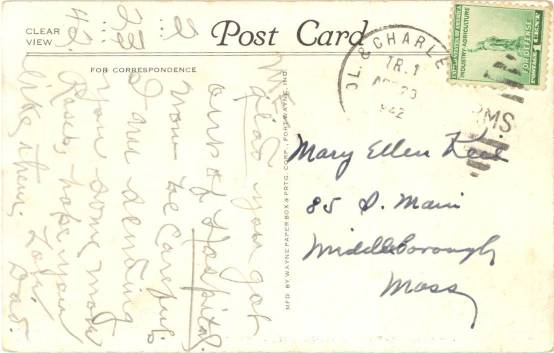 CLEAR
VIEW
Post Card
FOR CORRESPONDENCE
2
23
42
glad you got
out of Hospital.
Now be careful.
I am sending
you some more
Roses, hope you
like them; Love
Dad.
MF'D. BY WAYNE PAPER BOX & PRTG. CORP., FORT WAYNE, IND.
OL. & CHARLE
TR. 1
23
942
R.M.S.
UNITED STATES OF AMERICA
INDUSTRY AGRICULTURE
FOR DEFENSE
1 CENT
Mary Ellen
85 S. Main
Middleborough
Mass